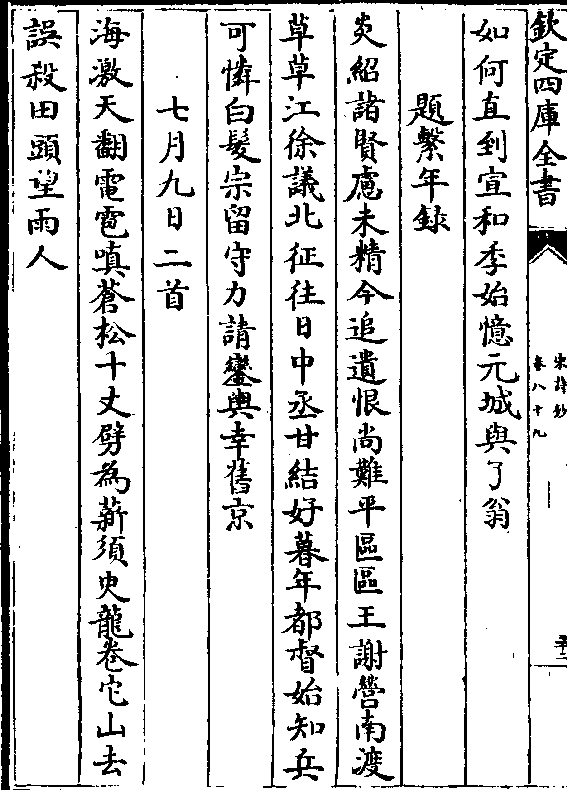 欽定四庫全書
宋詩鈔
卷八十九
如何直到宣和季始憶元城與了翁
題繫年録
炎紹諸賢慮未精今追遺恨尚難平區區王謝營南渡
草草江徐議北征往日中丞甘結好暮年都督始知兵
可憐白髮宗留守力請鑾輿幸舊京
七月九日二首
海激天翻電雹嗔蒼松十丈劈為薪須臾龍卷它山去
誤殺田頭望雨人